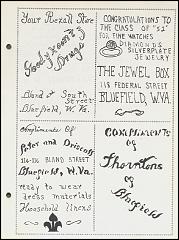 Your Rexall Store
Goodykoontz
Drugs
Bland at South
Street
Bluefield, W. Va.
CONGRATULATIONS TO
THE CLASS OF "52"
FOR FINE WATCHES
DIAMONDS
SILVERPLATE
JEWELRY
THE JEWEL BOX
118 FEDERAL STREET
BLUEFIELD, W.VA.
Compliments Of
Peter and Driscoll
BLAND STREET
Bluefield, W. Va.
ready to wear
dress materials
Household linens
COMPLIMENTS
OF
Thorntons
of
Bluefield